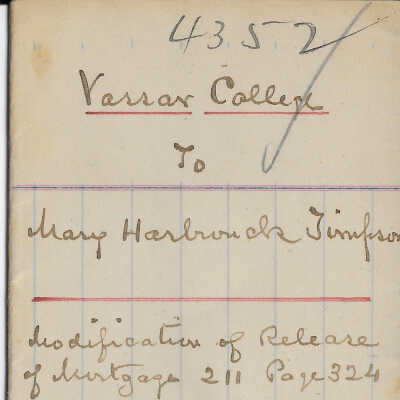 4352
Vassar College
To
Mary Hasbrouck Timpson
Modification of Release
of Mortgage 211 Page 324